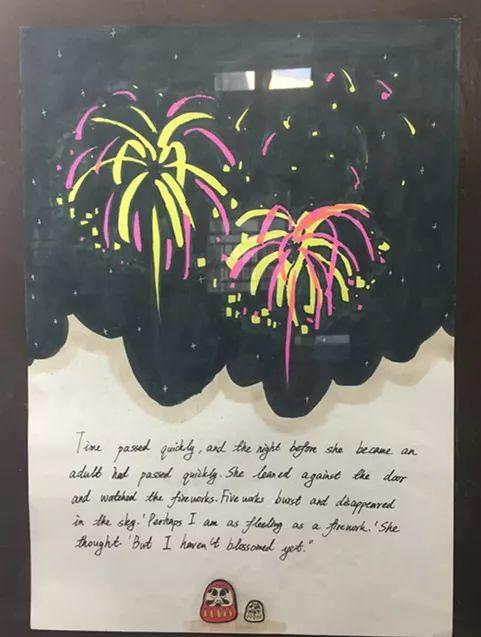 Time passed quickly, and the night before she became an
adult had passed quickly. She leaned against the door
and watched the fireworks. Fireworks burst and disappeared
in the sky. 'Perhaps I am as fleeling as a firework.' She
thought. 'But I haven't blossomed yet."